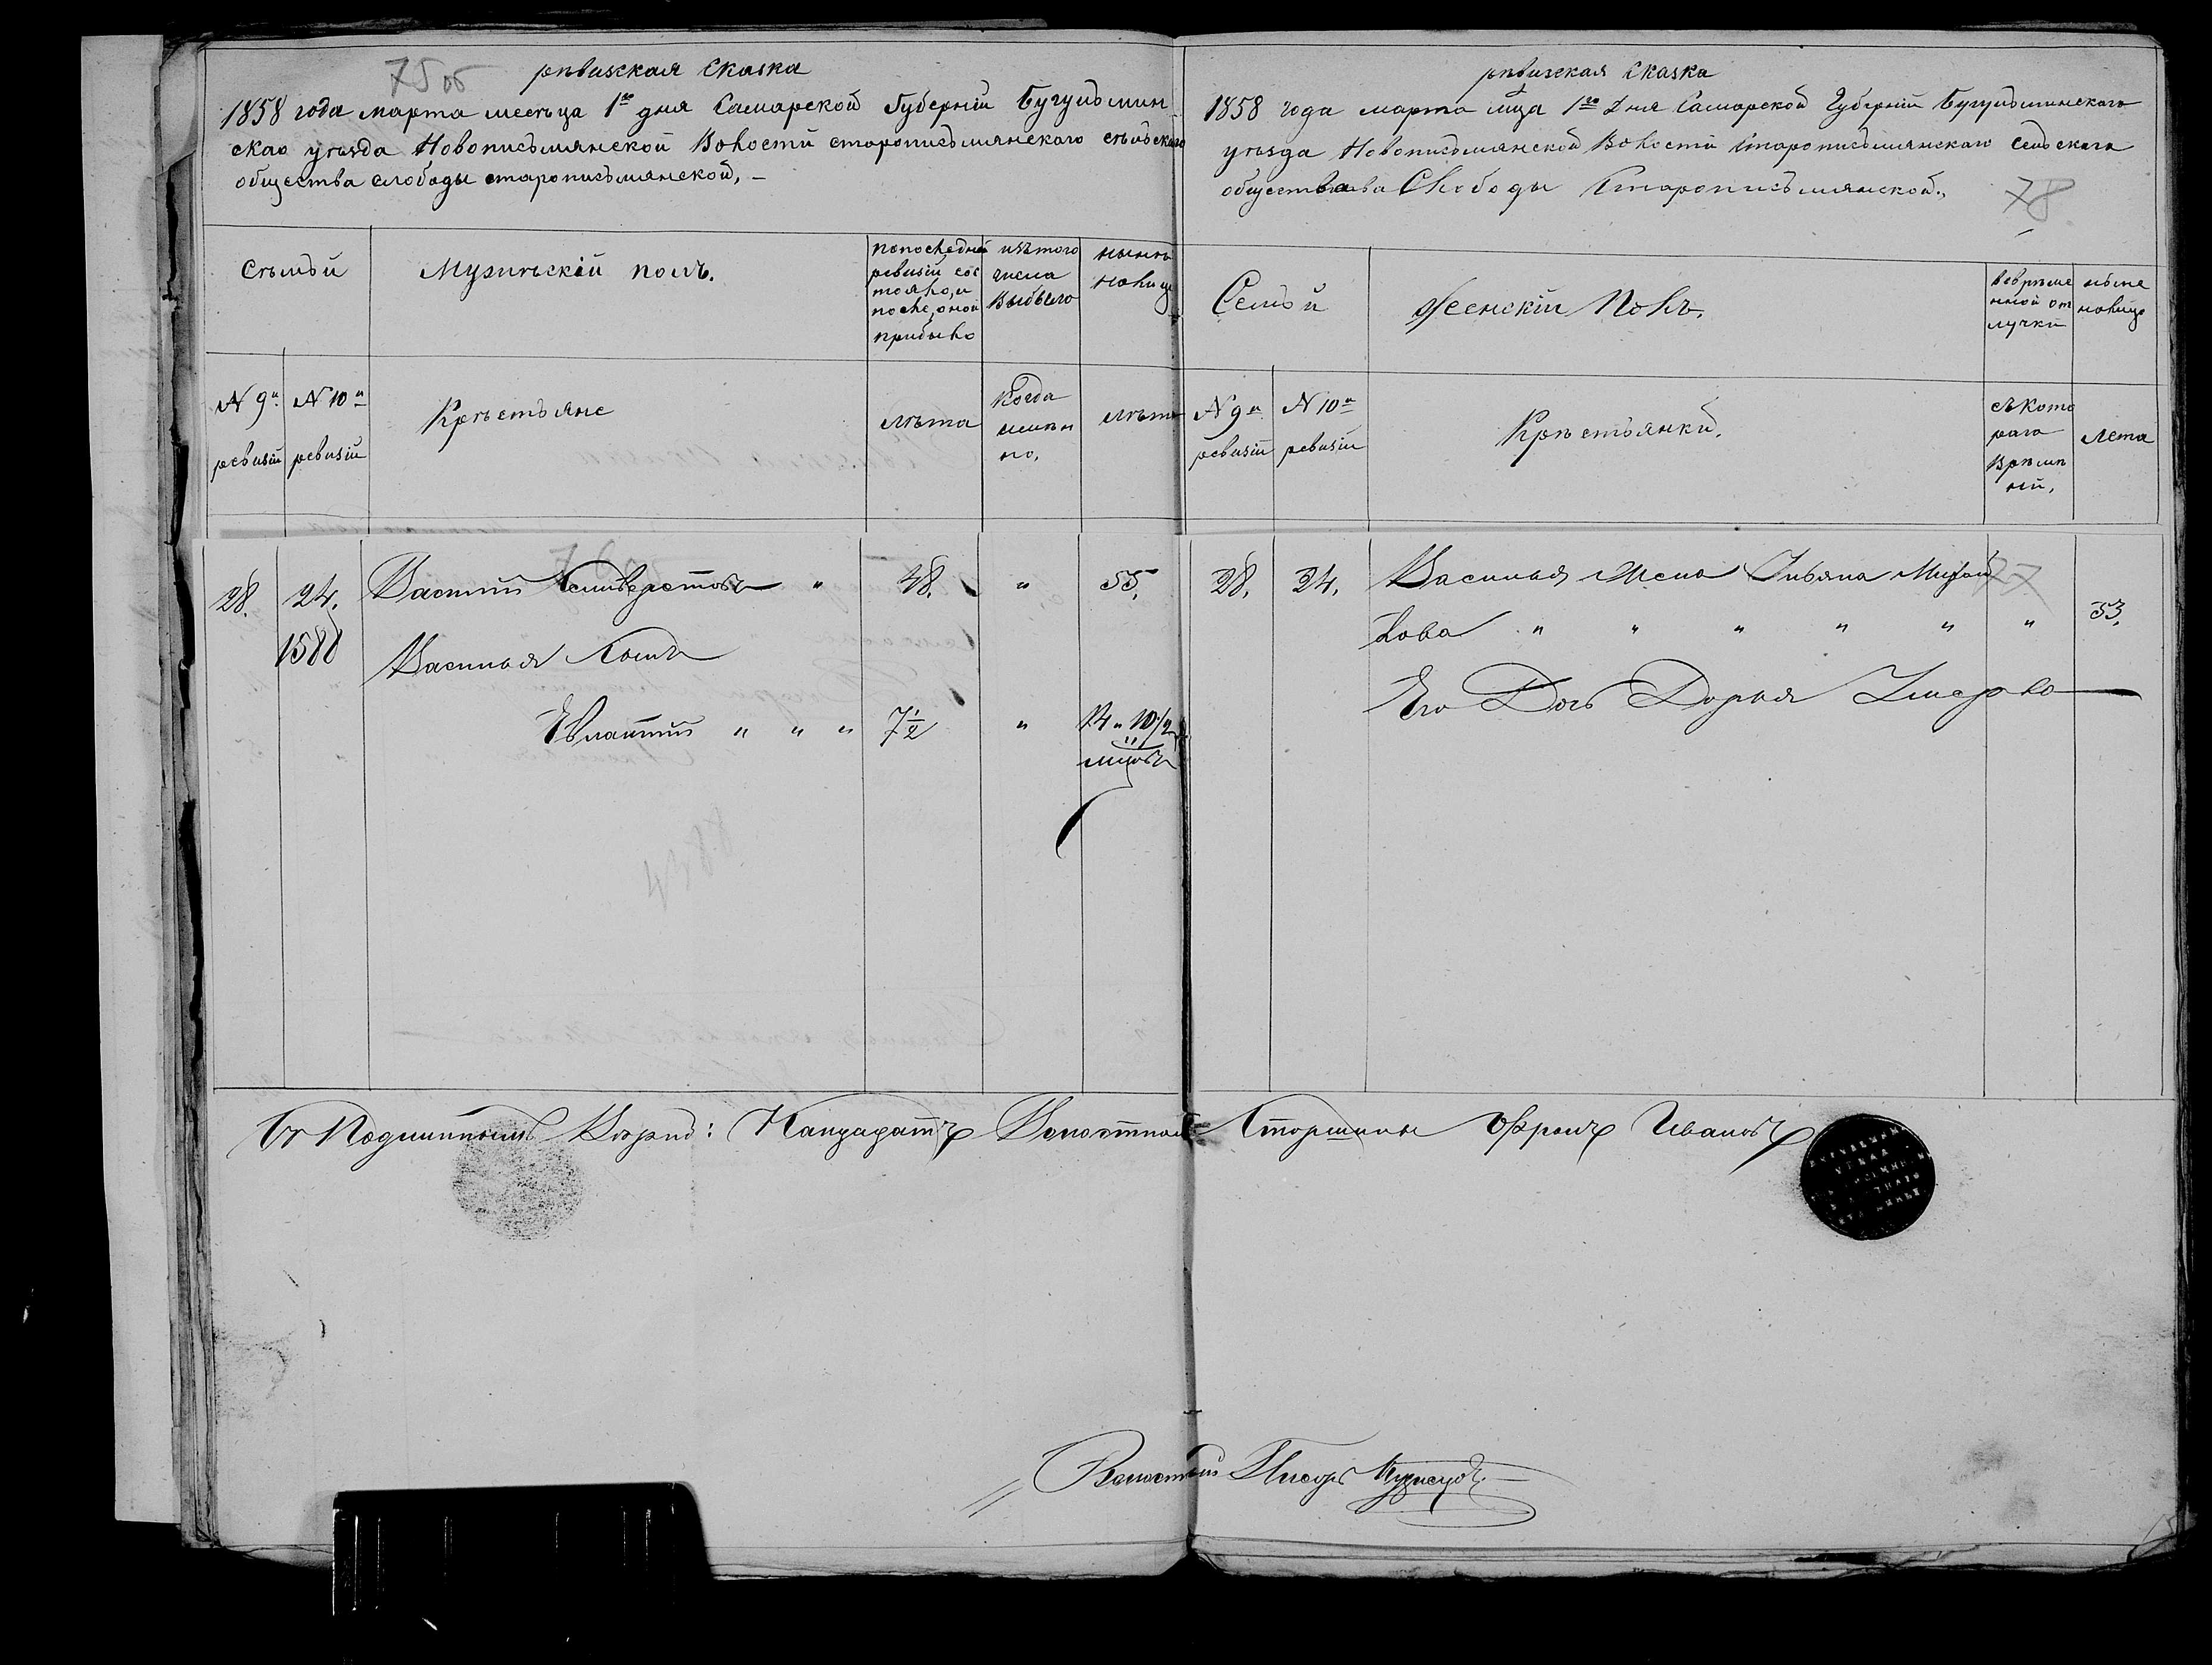 75 об
рѣвизская Сказка
1858 года марта месеца 1го дня Самарской Губерніи Бугульмин
скао уѣзда Новописьмянской Волости старописьмянскаго сельскаго
общества слободы старописьмянской, —
Сѣмьи
Мужескій полъ.
попоследней
ревизіи сос
тояло, и
после оной
прибыло
изътого
числа
выбыло
нынѣ
налицо
N 9й ревизіи
N 10й ревизіи
Крѣстьяне
лѣта
Когда
имянно.
лѣта
28. 24. Василий Селиверстовъ " 48. " 55.
1588 Василья сынъ
Евлампий " " " 7½ " 14 " 10½
мцовъ
рѣвизская Сказка
1858 года марта мца 1го Дня Самарской Губерніи Бугульминскаго
уѣзда Новописьмянской Волости Старописьмянскаго Сельскаго
общества Слободы Старописьмянской.,
78
Семьй
Женскій Полъ.
Вовреме
нной от
лучки
ныне
налицо
N 9й ревизіи
N 10й ревизіи
Крѣстьянки.
съ кото
раго
Врѣмѣ
ни,
Лета
28. 24. Василья Жена Ульяна Михай
77
лова " " " " " " 53.
Его Дочь Дарья Умерла —
Волостной Старшина Иванов
Волостной Писарь Кузнецов